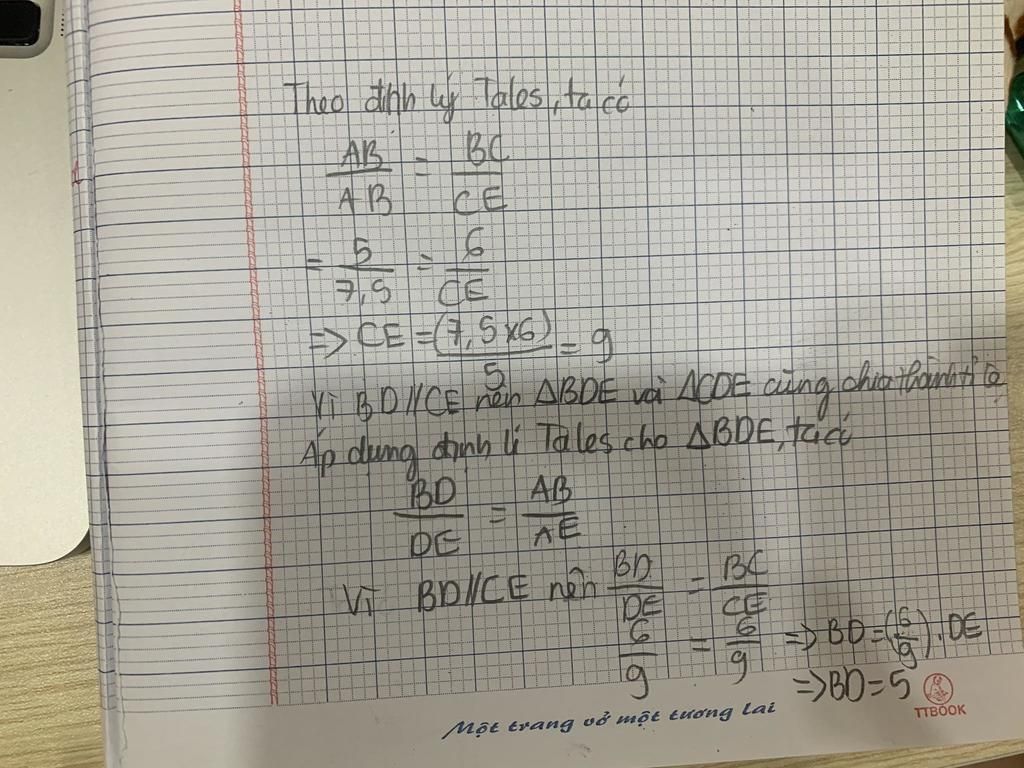 Theo định lý Tales, ta có
AB/AB = BC/CE
= 5/7,5 = 6/CE
=> CE = (7,5 x 6)/5 = 9
Vì BD//CE nên ΔBDE và ΔCDE cùng chia thành tỉ lệ
Áp dụng định lí Tales cho ΔBDE, ta có
BD/DE = AB/AE
Vì BD//CE nên BD/DE = BC/CE
6/9 = 6/9 => BD = (6/9) . DE
=> BD = 5
Một trang vở một tương lai
TTBOOK